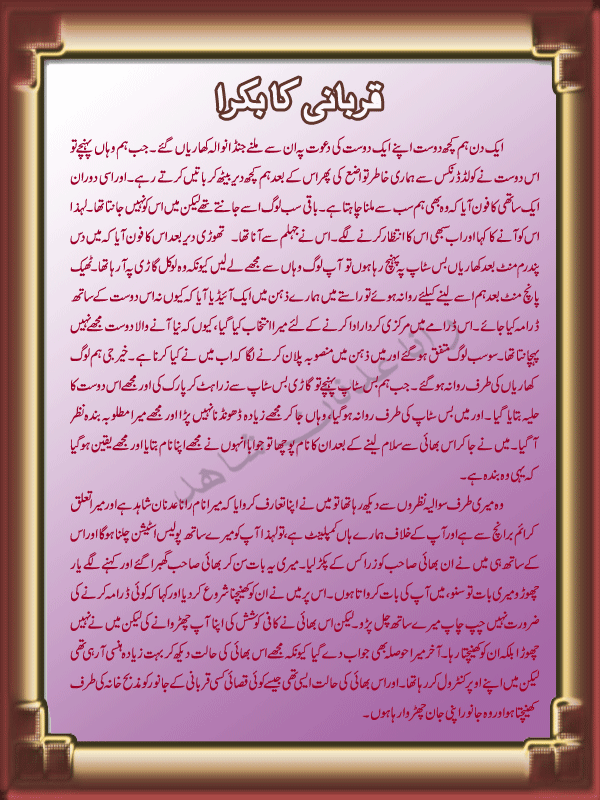 قربانی کا بکرا
ایک دن ہم کچھ دوست اپنے ایک دوست کی دعوت پہ ان سے ملنے جنڈانوالہ کھاریاں گئے۔ جب ہم وہاں پہنچے تو
اس دوست نے کولڈ ڈرنکس سے ہماری خاطر تواضع کی پھر اس کے بعد ہم کچھ دیر بیٹھ کر باتیں کرتے رہے۔ اور اسی دوران
ایک ساتھی کا فون آیا کہ وہ بھی ہم سب سے ملنا چاہتا ہے۔ باقی سب لوگ اسے جانتے تھے لیکن میں اس کو نہیں جانتا تھا۔ لہذا
اس کو آنے کا کہا اور اب سبھی اس کا انتظار کرنے لگے۔ اس نے جہلم سے آنا تھا۔ تھوڑی دیر بعد اس کا فون آیا کہ میں دس
پندرہ منٹ بعد کھاریاں بس سٹاپ پہ پہنچ رہا ہوں تو آپ لوگ وہاں سے مجھے لے لیں کیونکہ وہ لوکل گاڑی پہ آ رہا تھا۔ ٹھیک
پانچ منٹ بعد ہم اسے لینے کیلئے روانہ ہوئے تو راستے میں ہمارے ذہن میں ایک آئیڈیا آیا کہ کیوں نہ اس دوست کے ساتھ
ڈرامہ کیا جائے۔ اس ڈرامے میں مرکزی کردار ادا کرنے کے لئے میرا انتخاب کیا گیا، کیوں کہ نیا آنے والا دوست مجھے نہیں
پہچانتا تھا۔ سو سب لوگ متفق ہو گئے اور میں ذہن میں منصوبہ پلان کرنے لگا کہ اب میں نے کیا کرنا ہے۔ خیر جی ہم لوگ
کھاریاں کی طرف روانہ ہو گئے۔ جب ہم بس سٹاپ پہنچے تو گاڑی بس سٹاپ سے زرا ہٹ کر پارک کی اور مجھے اس دوست کا
حلیہ بتایا گیا۔ اور میں بس سٹاپ کی طرف روانہ ہو گیا، وہاں جا کر مجھے زیادہ ڈھونڈنا نہیں پڑا اور مجھے میرا مطلوبہ بندہ نظر
آ گیا۔ میں نے جا کر اس بھائی سے سلام لینے کے بعد ان کا نام پوچھا تو جوابا انہوں نے مجھے اپنا نام بتایا اور مجھے یقین ہو گیا
کہ یہی وہ بندہ ہے۔
وہ میری طرف سوالیہ نظروں سے دیکھ رہا تھا تو میں نے اپنا تعارف کروایا کہ میرا نام رانا عدنان شاہد ہے اور میرا تعلق
کرائم برانچ سے ہے اور آپ کے خلاف ہمارے ہاں کمپلینٹ ہے، تو لہذا آپ کو میرے ساتھ پولیس اسٹیشن چلنا ہوگا اور اس
کے ساتھ ہی میں نے ان بھائی صاحب کو زرا کس کے پکڑ لیا۔ میری یہ بات سن کر بھائی صاحب گھبرا گئے اور کہنے لگے یار
چھوڑو میری بات تو سنو، میں آپ کی بات کرواتا ہوں۔ اس پر میں نے ان کو کھینچنا شروع کر دیا اور کہا کہ کوئی ڈرامہ کرنے کی
ضرورت نہیں چپ چاپ میرے ساتھ چل پڑو۔ لیکن اس بھائی نے کافی کوشش کی اپنا آپ چھڑوانے کی لیکن میں نے نہیں
چھوڑا بلکہ ان کو کھینچتا رہا۔ آخر میرا حوصلہ بھی جواب دے گیا کیونکہ مجھے اس بھائی کی حالت دیکھ کر بہت زیادہ ہنسی آ رہی تھی
لیکن میں اپنے اوپر کنٹرول کر رہا تھا۔ اور اس بھائی کی حالت ایسی تھی جیسے کوئی قصائی کسی قربانی کے جانور کو مذبح خانہ کی طرف
کھینچتا ہو اور وہ جانور اپنی جان چھڑوا رہا ہوں۔
رانا عدنان شاہد